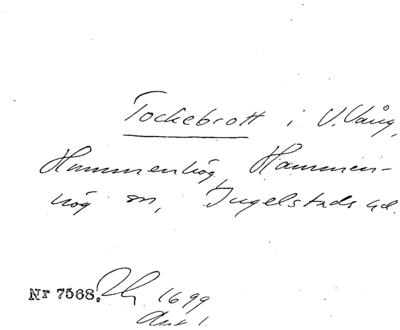 Tockebrott i V. Vång,
Hammenhög, Hammen-
hög sn, Ingelstads hd.
Nr 7568. 1699